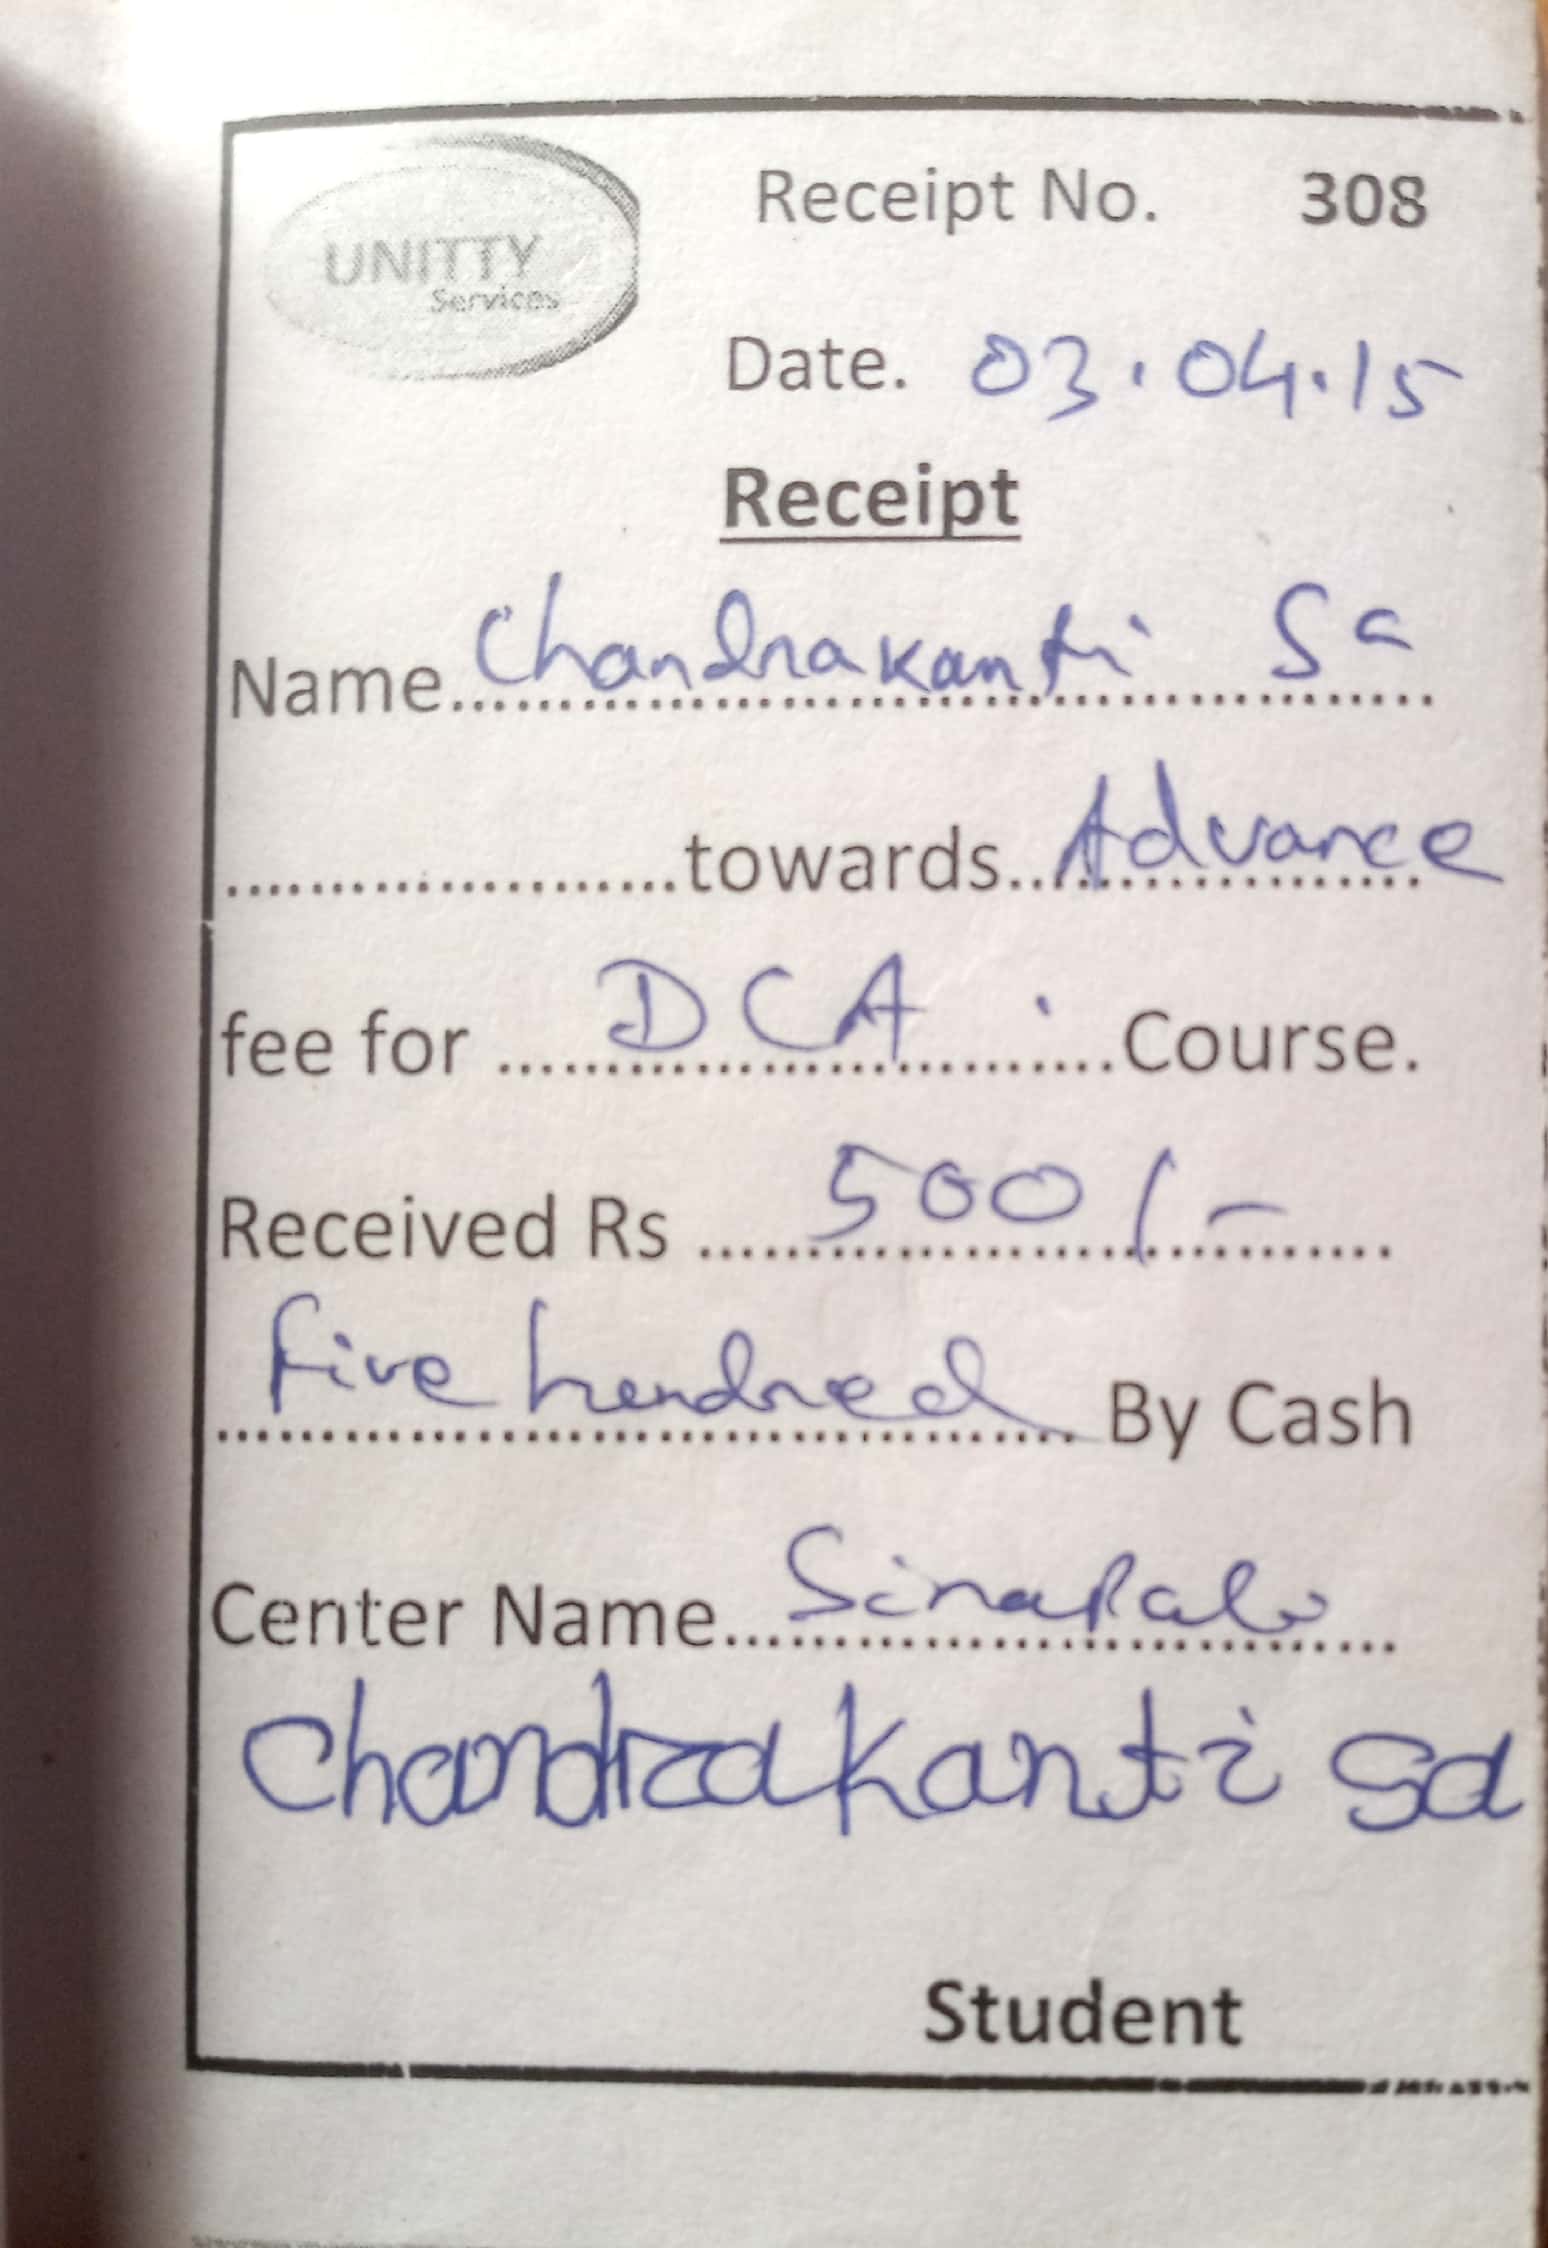 UNITTY
Services
Receipt No. 308
Date. 03.04.15
Receipt
Name Chandrakanti Sa
towards Advance
fee for DCA Course.
Received Rs 500/-
five hundred By Cash
Center Name Sinapali
Chandrakanti Sa
Student